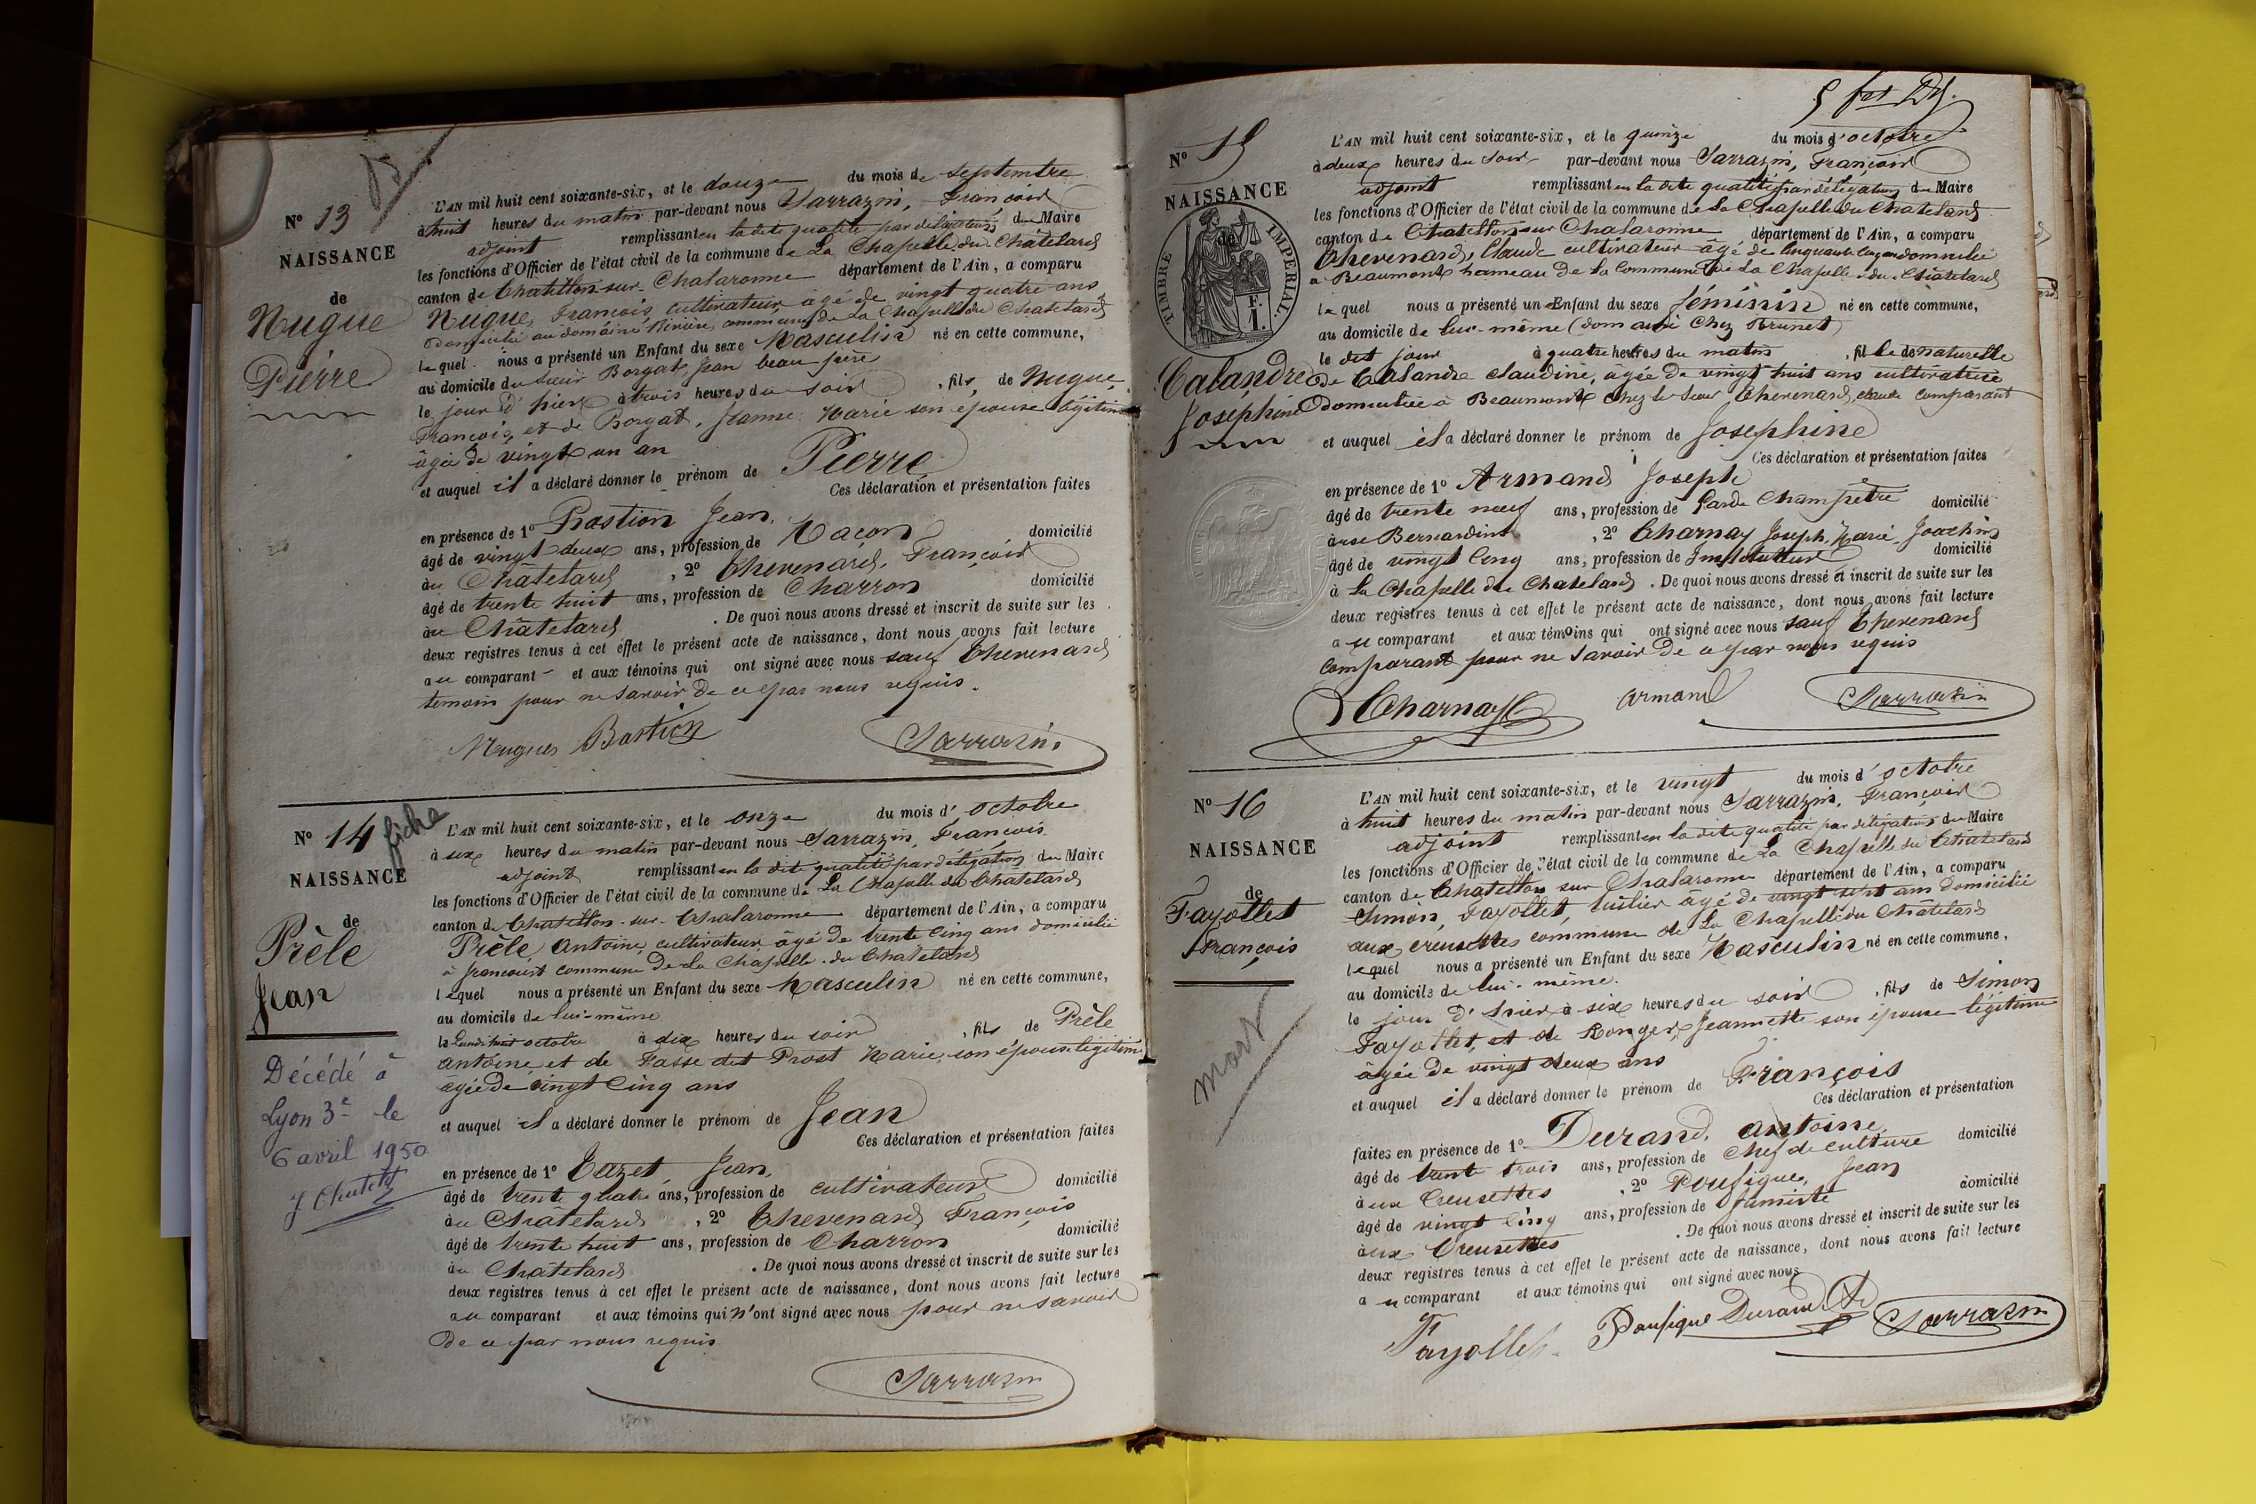 N° 13
NAISSANCE
de
Nugue
Pierre
L'AN mil huit cent soixante-six, et le douze du mois de septembre
à huit heures du matin par-devant nous Sarrazin, François
adjoint remplissant en la dite qualité par délégation du Maire
les fonctions d'Officier de l'état civil de la commune de La Chapelle du Châtelard
canton de Chatillon-sur-Chalaronne département de l'Ain, a comparu
Nugue, François, cultivateur, âgé de vingt quatre ans
domicilié au domaine commune de La Chapelle du Chatelard
lequel nous a présenté un Enfant du sexe Masculin né en cette commune,
au domicile du sieur Borgat Jean beau père
le jour d'hier à trois heures du soir, fils de Nugue
François, et de Borgat, Jeanne Marie son épouse légitime
âgée de vingt un an
et auquel il a déclaré donner le prénom de Pierre
Ces déclaration et présentation faites
en présence de 1° Bastion Jean,
âgé de vingt deux ans, profession de Macon domicilié
au Châtelard, 2° Thevenard, François
âgé de trente huit ans, profession de Charron domicilié
au Châtelard. De quoi nous avons dressé et inscrit de suite sur les
deux registres tenus à cet effet le présent acte de naissance, dont nous avons fait lecture
au comparant et aux témoins qui ont signé avec nous sauf Thevenard
temoin pour ne savoir de ce par nous requis.
Nugues Bastion Sarrazin
N° 14
fiche
NAISSANCE
de
Prèle
Jean
Décédé à
Lyon 3e le
6 avril 1950
L'AN mil huit cent soixante-six, et le onze du mois d'octobre
à six heures du matin par-devant nous Sarrazin, François
adjoint remplissant en la dite qualité par délégation du Maire
les fonctions d'Officier de l'état civil de la commune de La Chapelle du Châtelard
canton de Chatillon-sur-Chalaronne département de l'Ain, a comparu
Prèle, Antoine, cultivateur âgé de trente cinq ans domicilié
à commune de La Chapelle-du-Chatelard
lequel nous a présenté un Enfant du sexe Masculin né en cette commune,
au domicile de lui-même
le Lundi huit octobre à dix heures du soir, fils de Prèle
Antoine et de Fasse dit Prost Marie, son épouse légitime
âgée de vingt cinq ans
et auquel il a déclaré donner le prénom de Jean
Ces déclaration et présentation faites
en présence de 1° Jean,
âgé de trente quatre ans, profession de cultivateur domicilié
au Châtelard, 2° Thevenard François
âgé de trente huit ans, profession de Charron domicilié
au Châtelard. De quoi nous avons dressé et inscrit de suite sur les
deux registres tenus à cet effet le présent acte de naissance, dont nous avons fait lecture
au comparant et aux témoins qui n'ont signé avec nous pour ne savoir
de ce par nous requis
Sarrazin
N° 15
NAISSANCE
de
TIMBRE IMPERIAL
F.
1.
Calandre
Josephine
L'AN mil huit cent soixante-six, et le quinze du mois d'octobre
à deux heures du soir par-devant nous Sarrazin, François
adjoint remplissant en la dite qualité par délégation du Maire
les fonctions d'Officier de l'état civil de la commune de La Chapelle du Chatelard
canton de Chatillon sur Chalaronne département de l'Ain, a comparu
Thevenard, Claude cultivateur âgé de cinquante cinq ans domicilié
à Beaumont hameau de la Commune de La Chapelle-du-Châtelard
lequel nous a présenté un Enfant du sexe féminin né en cette commune,
au domicile de lui-même (dom chez Brunet)
le dit jour à quatre heures du matin, fille de naturelle
de Calandre Claudine, âgée de vingt huit ans cultivatrice
domiciliée à Beaumont chez le sieur Thevenard, claude comparant
et auquel il a déclaré donner le prénom de Josephine
Ces déclaration et présentation faites
en présence de 1° Armand Joseph
âgé de trente neuf ans, profession de Garde Champêtre domicilié
à rue Bernardin, 2° Charnay Joseph Marie Joachim
âgé de vingt cinq ans, profession de Instituteur domicilié
à La Chapelle du Chatelard. De quoi nous avons dressé et inscrit de suite sur les
deux registres tenus à cet effet le présent acte de naissance, dont nous avons fait lecture
au comparant et aux témoins qui ont signé avec nous sauf Thevenard
comparant pour ne savoir de ce par nous requis
Charnay Armand Sarrazin
N° 16
NAISSANCE
de
Fayollet
François
mort
L'AN mil huit cent soixante-six, et le vingt du mois d'octobre
à huit heures du matin par-devant nous Sarrazin, François
adjoint remplissant en la dite qualité par délégation du Maire
les fonctions d'Officier de l'état civil de la commune de La Chapelle du Châtelard
canton de Chatillon sur Chalaronne département de l'Ain, a comparu
Simon, Fayollet, tuilier âgé de vingt sept ans domicilié
aux creusettes commune de La Chapelle du Châtelard
lequel nous a présenté un Enfant du sexe Masculin né en cette commune,
au domicile de lui-même.
le jour d'hier à six heures du soir, fils de Simon
Fayollet, et de Ronger, Jeannette son épouse légitime
âgée de vingt deux ans
et auquel il a déclaré donner le prénom de François
Ces déclaration et présentation
faites en présence de 1° Durand, Antoine,
âgé de trente trois ans, profession de Chef de culture domicilié
aux Creusettes, 2° Pousique, Jean
âgé de vingt cinq ans, profession de domicilié
aux Creusettes. De quoi nous avons dressé et inscrit de suite sur les
deux registres tenus à cet effet le présent acte de naissance, dont nous avons fait lecture
au comparant et aux témoins qui ont signé avec nous
Fayollet Pousique Durand Sarrazin